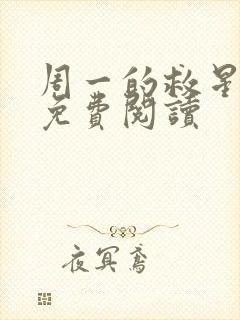 周一的救星
免費閱讀
夜冥鳶